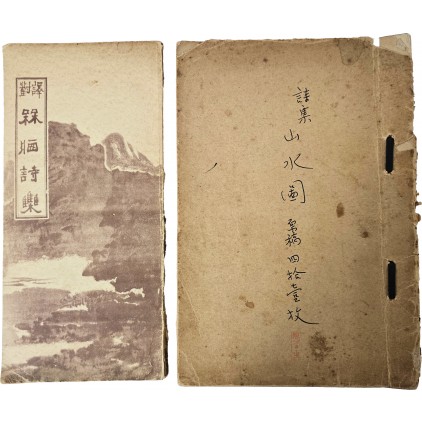 對譯
詩集
詩集 山水圖 原稿四拾壹枚